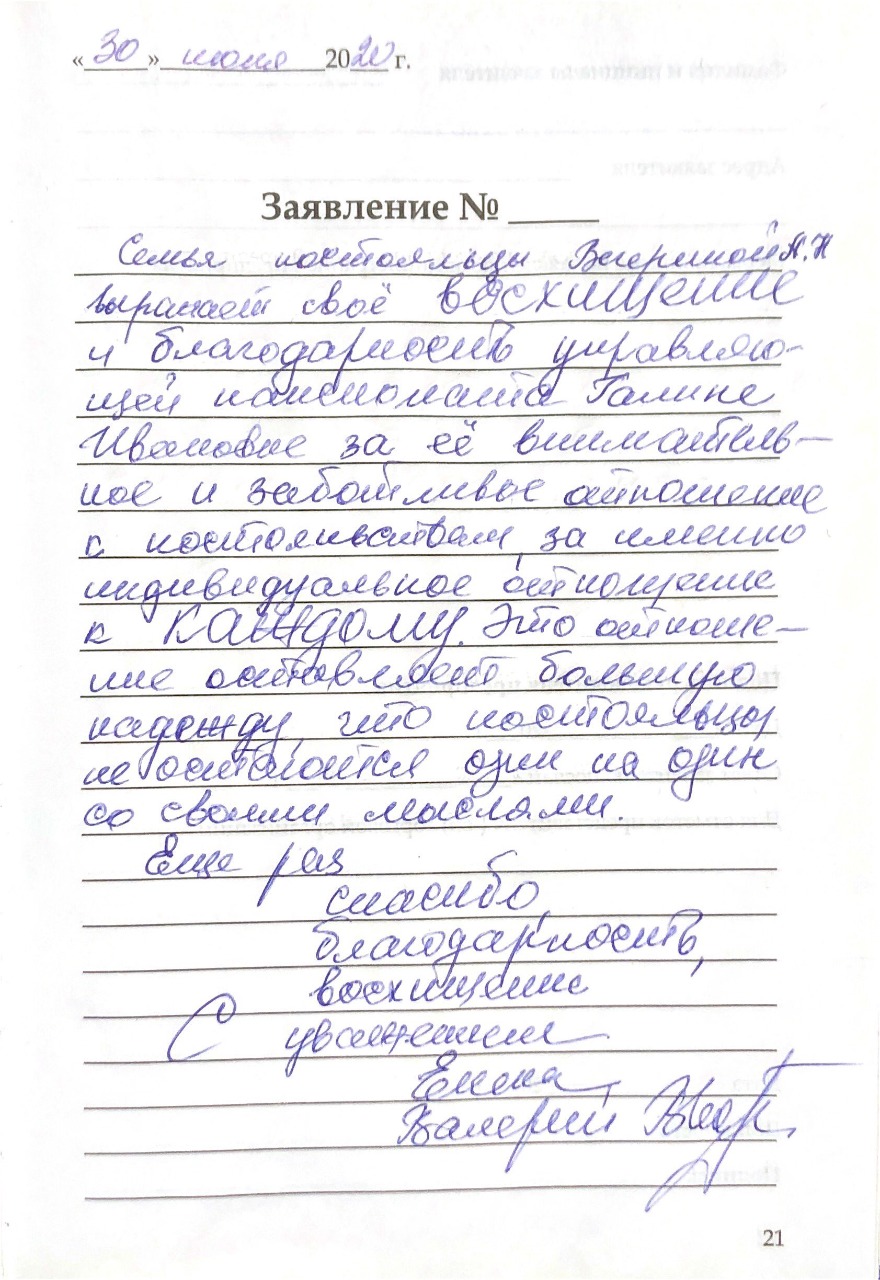 «30» июня 2020 г.
Заявление № ____
Семья постояльцы А.Н
выражает своё восхищение
и благодарность управляю-
щей пансионата Галине
Ивановне за её вниматель-
ное и заботливое отношение
к постояльствам, за именно
индивидуальное отношение
к каждому. Это отноше-
ние оставляет большую
надежду, что постояльцы
не остаются один на один
со своими мыслями.
Еще раз
спасибо,
благодарность,
восхищение
С уважением
Елена,
Валерий
21